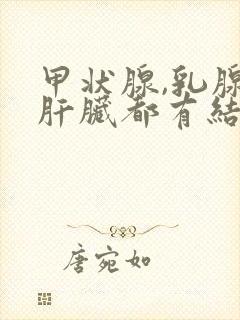 甲状腺,乳腺
肝臟都有結
唐宛如